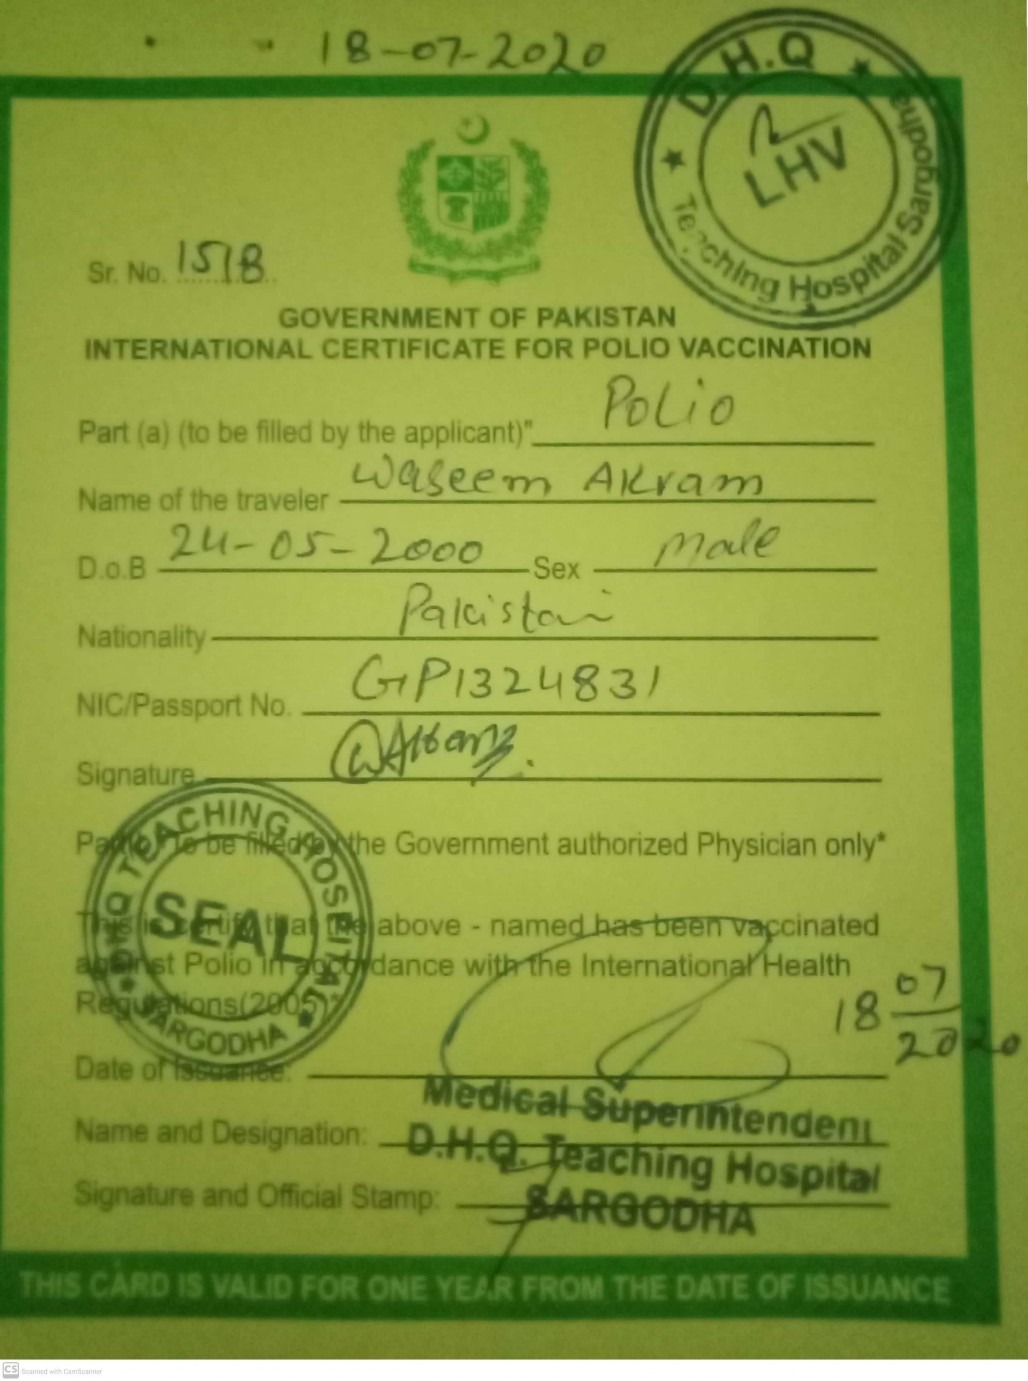 18-07-2020
D.H.Q Teaching Hospital Sargodha
LHV
Sr. No. 1518
GOVERNMENT OF PAKISTAN
INTERNATIONAL CERTIFICATE FOR POLIO VACCINATION
Part (a) (to be filled by the applicant)" Polio
Name of the traveler Waseem Akram
D.o.B 24-05-2000 Sex Male
Nationality Pakistani
NIC/Passport No. GP1324831
Signature
Part to be filled by the Government authorized Physician only*
DHQ TEACHING HOSPITAL SARGODHA
SEAL
This is certify that the above - named has been vaccinated
against Polio in accordance with the International Health
Regulations(2005)"
18 07
2020
Date of Issuance:
Name and Designation: Medical Superintendent
D.H.Q. Teaching Hospital
Signature and Official Stamp: SARGODHA
THIS CARD IS VALID FOR ONE YEAR FROM THE DATE OF ISSUANCE
CS Scanned with CamScanner